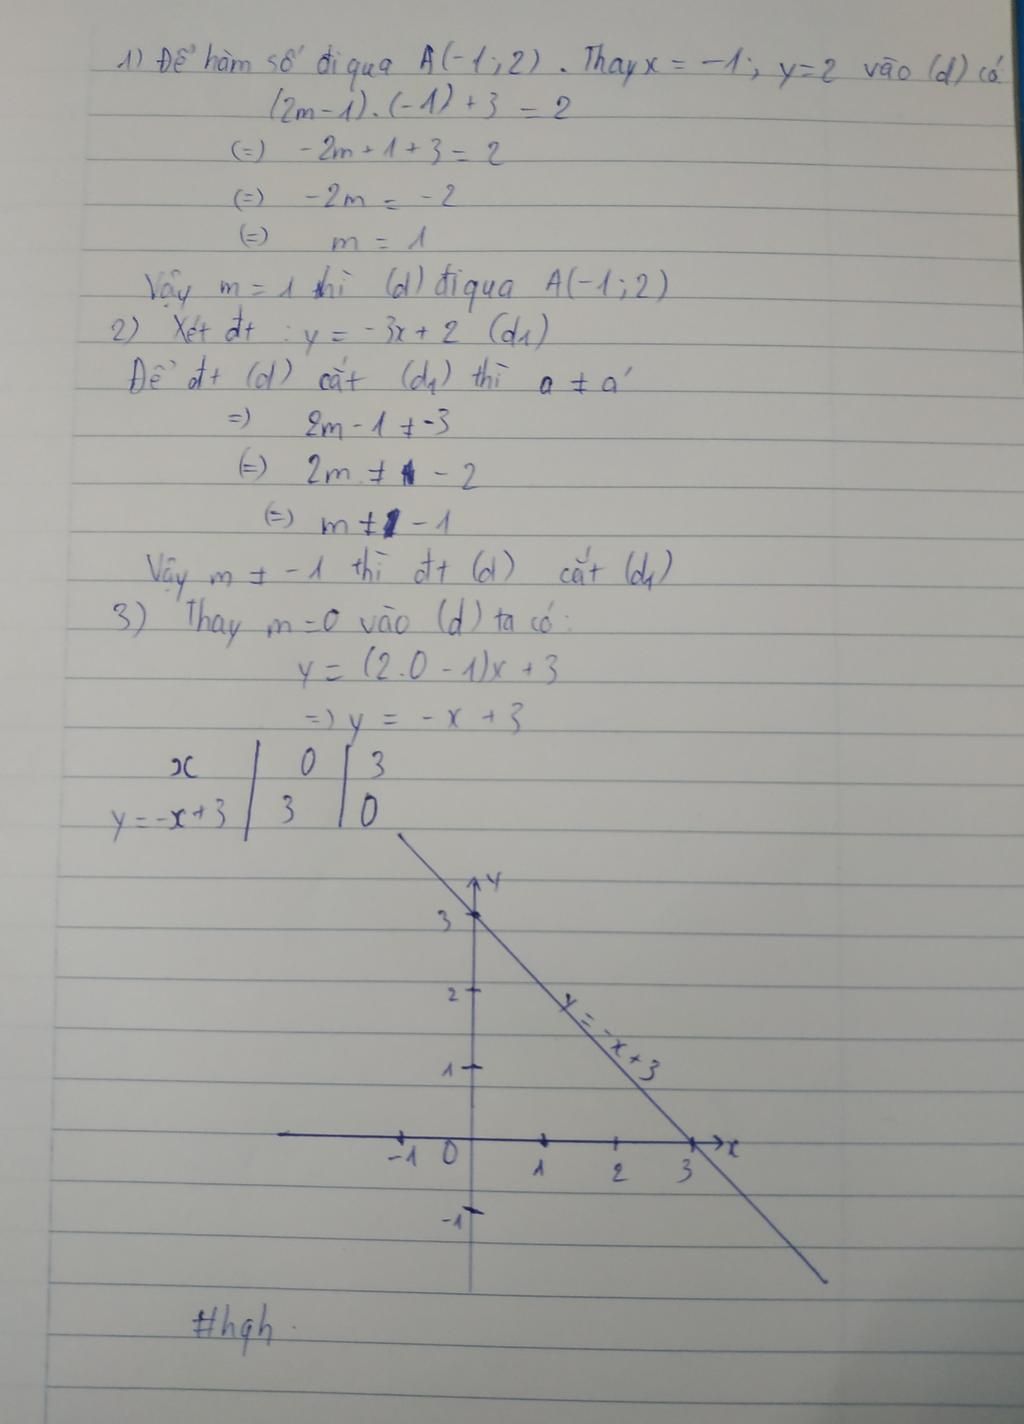 1) Để hàm số đi qua A(-1;2). Thay x = -1; y=2 vào (d) có:
(2m-1).(-1)+3 = 2
(=) -2m+1+3=2
(=) -2m = -2
(=) m = 1
Vậy m=1 thì (d) đi qua A(-1;2)
2) Xét đt : y = -3x+2 (d1)
Để đt (d) cắt (d1) thì a ≠ a'
=) 2m-1 ≠ -3
(=) 2m ≠ -2
(=) m ≠ -1
Vậy m ≠ -1 thì đt (d) cắt (d1)
3) Thay m=0 vào (d) ta có:
y = (2.0-1)x+3
=) y = -x+3
x | 0 | 3
y=-x+3 | 3 | 0
y
3
2
y=-x+3
1
-1 0 1 2 3 x
-1
#hgh.